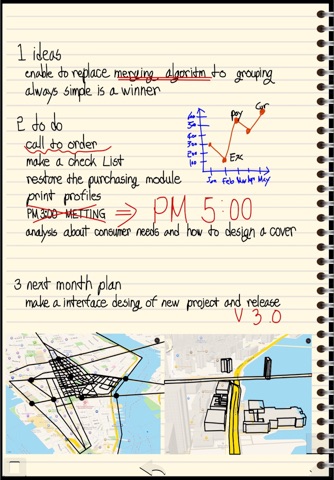 1 ideas
enable to replace merging algoritm to grouping
always simple is a winner
2 to do
call to order
make a check List
restore the purchasing module
print profiles
PM 3:00 METTING ⇒ PM 5:00
analysis about consumer needs and how to design a cover
600
500
400
300
200
100
Jan Feb Mar Apr May
Pay
Car
Exc
3 next month plan
make a interface desing of new project and release
V 3.0